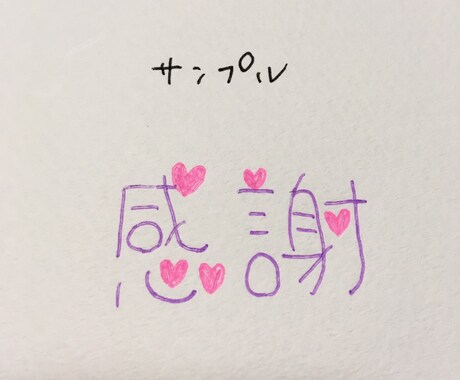 サンプル
感謝